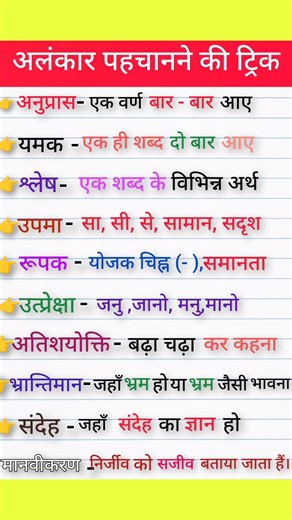 अलंकार पहचानने की ट्रिक
👉अनुप्रास- एक वर्ण बार - बार आए
👉यमक - एक ही शब्द दो बार आए
👉श्लेष- एक शब्द के विभिन्न अर्थ
👉उपमा - सा, सी, से, सामान, सदृश
👉रूपक - योजक चिह्न (- ),समानता
👉उत्प्रेक्षा - जनु ,जानो, मनु,मानो
👉अतिशयोक्ति - बढ़ा चढ़ा कर कहना
👉भ्रान्तिमान- जहाँ भ्रम हो या भ्रम जैसी भावना
👉संदेह - जहाँ संदेह का ज्ञान हो
मानवीकरण - निर्जीव को सजीव बताया जाता हैं।